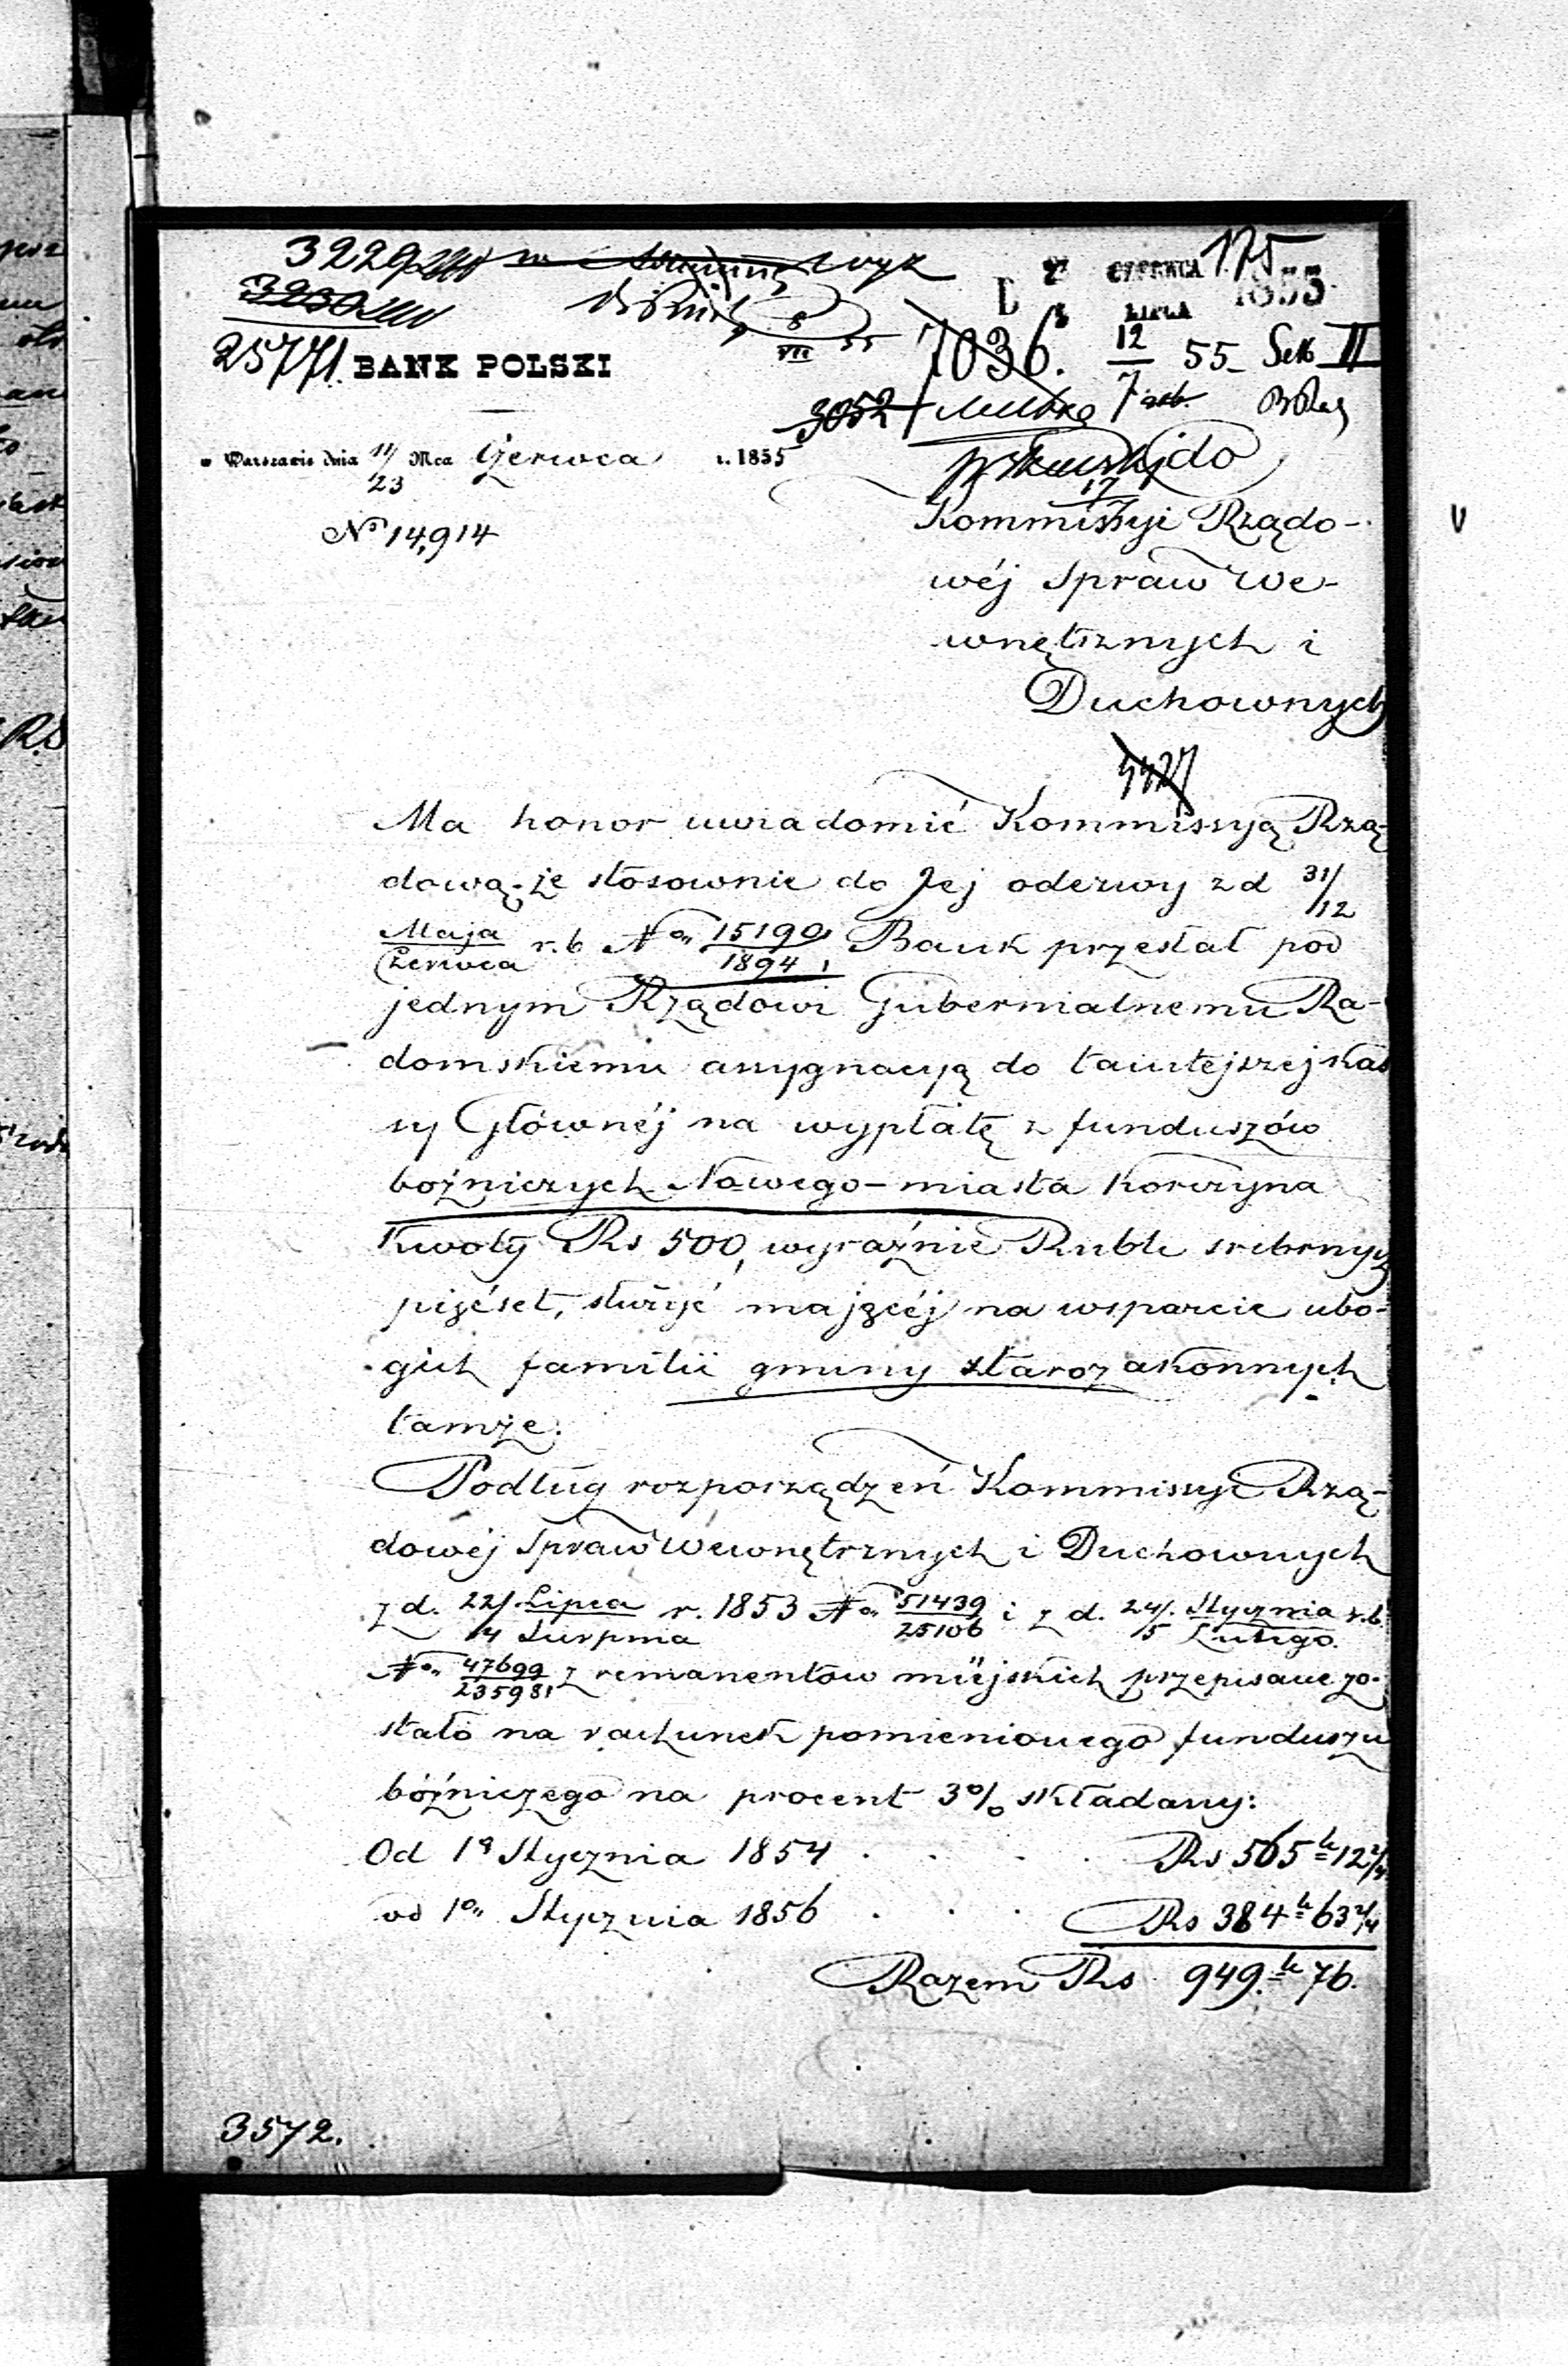 3229
3230
25771.
BANK POLSKI
w Warszawie dnia 11/23 Mca Czerwca r. 1855
No 14,914
175
CZERWCA
LIPCA 1855
7036. 12/7 55 Sek II
3052
8/VII 55
do
17/7
Kommissyi Rządo-
wéj Spraw We-
wnętrznych i
Duchownych
Ma honor uwiadomić Kommissyą Rzą-
dową, że stosownie do Jej odezwy z d 31/12
Maja/Czerwca r. b No 15190/1894, Bank przesłał pod
jednym Rządowi Gubernialnemu Ra-
domskiemu assygnacyą do tamtejszej Kas
sy Głównéj na wypłatę z funduszów
bożniczych Nowego-miasta Korczyna
Kwoty Rs 500, wyraźnie Rubli srebrnych
pięćset, służyć mającéj na wsparcie ubo-
gich familii gminy starozakonnych
tamże.
Podług rozporządzeń Kommissyi Rzą-
dowéj Spraw Wewnętrznych i Duchownych
z d. 22/4 Lipca/Sierpnia r. 1853 No 51439/25106 i z d. 24/5 Stycznia/Lutego r. b.
No 47699/235981 z remanentów miejskich przepisane zo-
stało na rachunek pomienionego funduszu
bóżniczego na procent 3% składany:
Od 1o Stycznia 1854 . . . . Rs 565 k 12 2/4
od 1o Stycznia 1856 . . . Rs 384 k 63 2/4
Razem Rs 949. k 76.
3572.